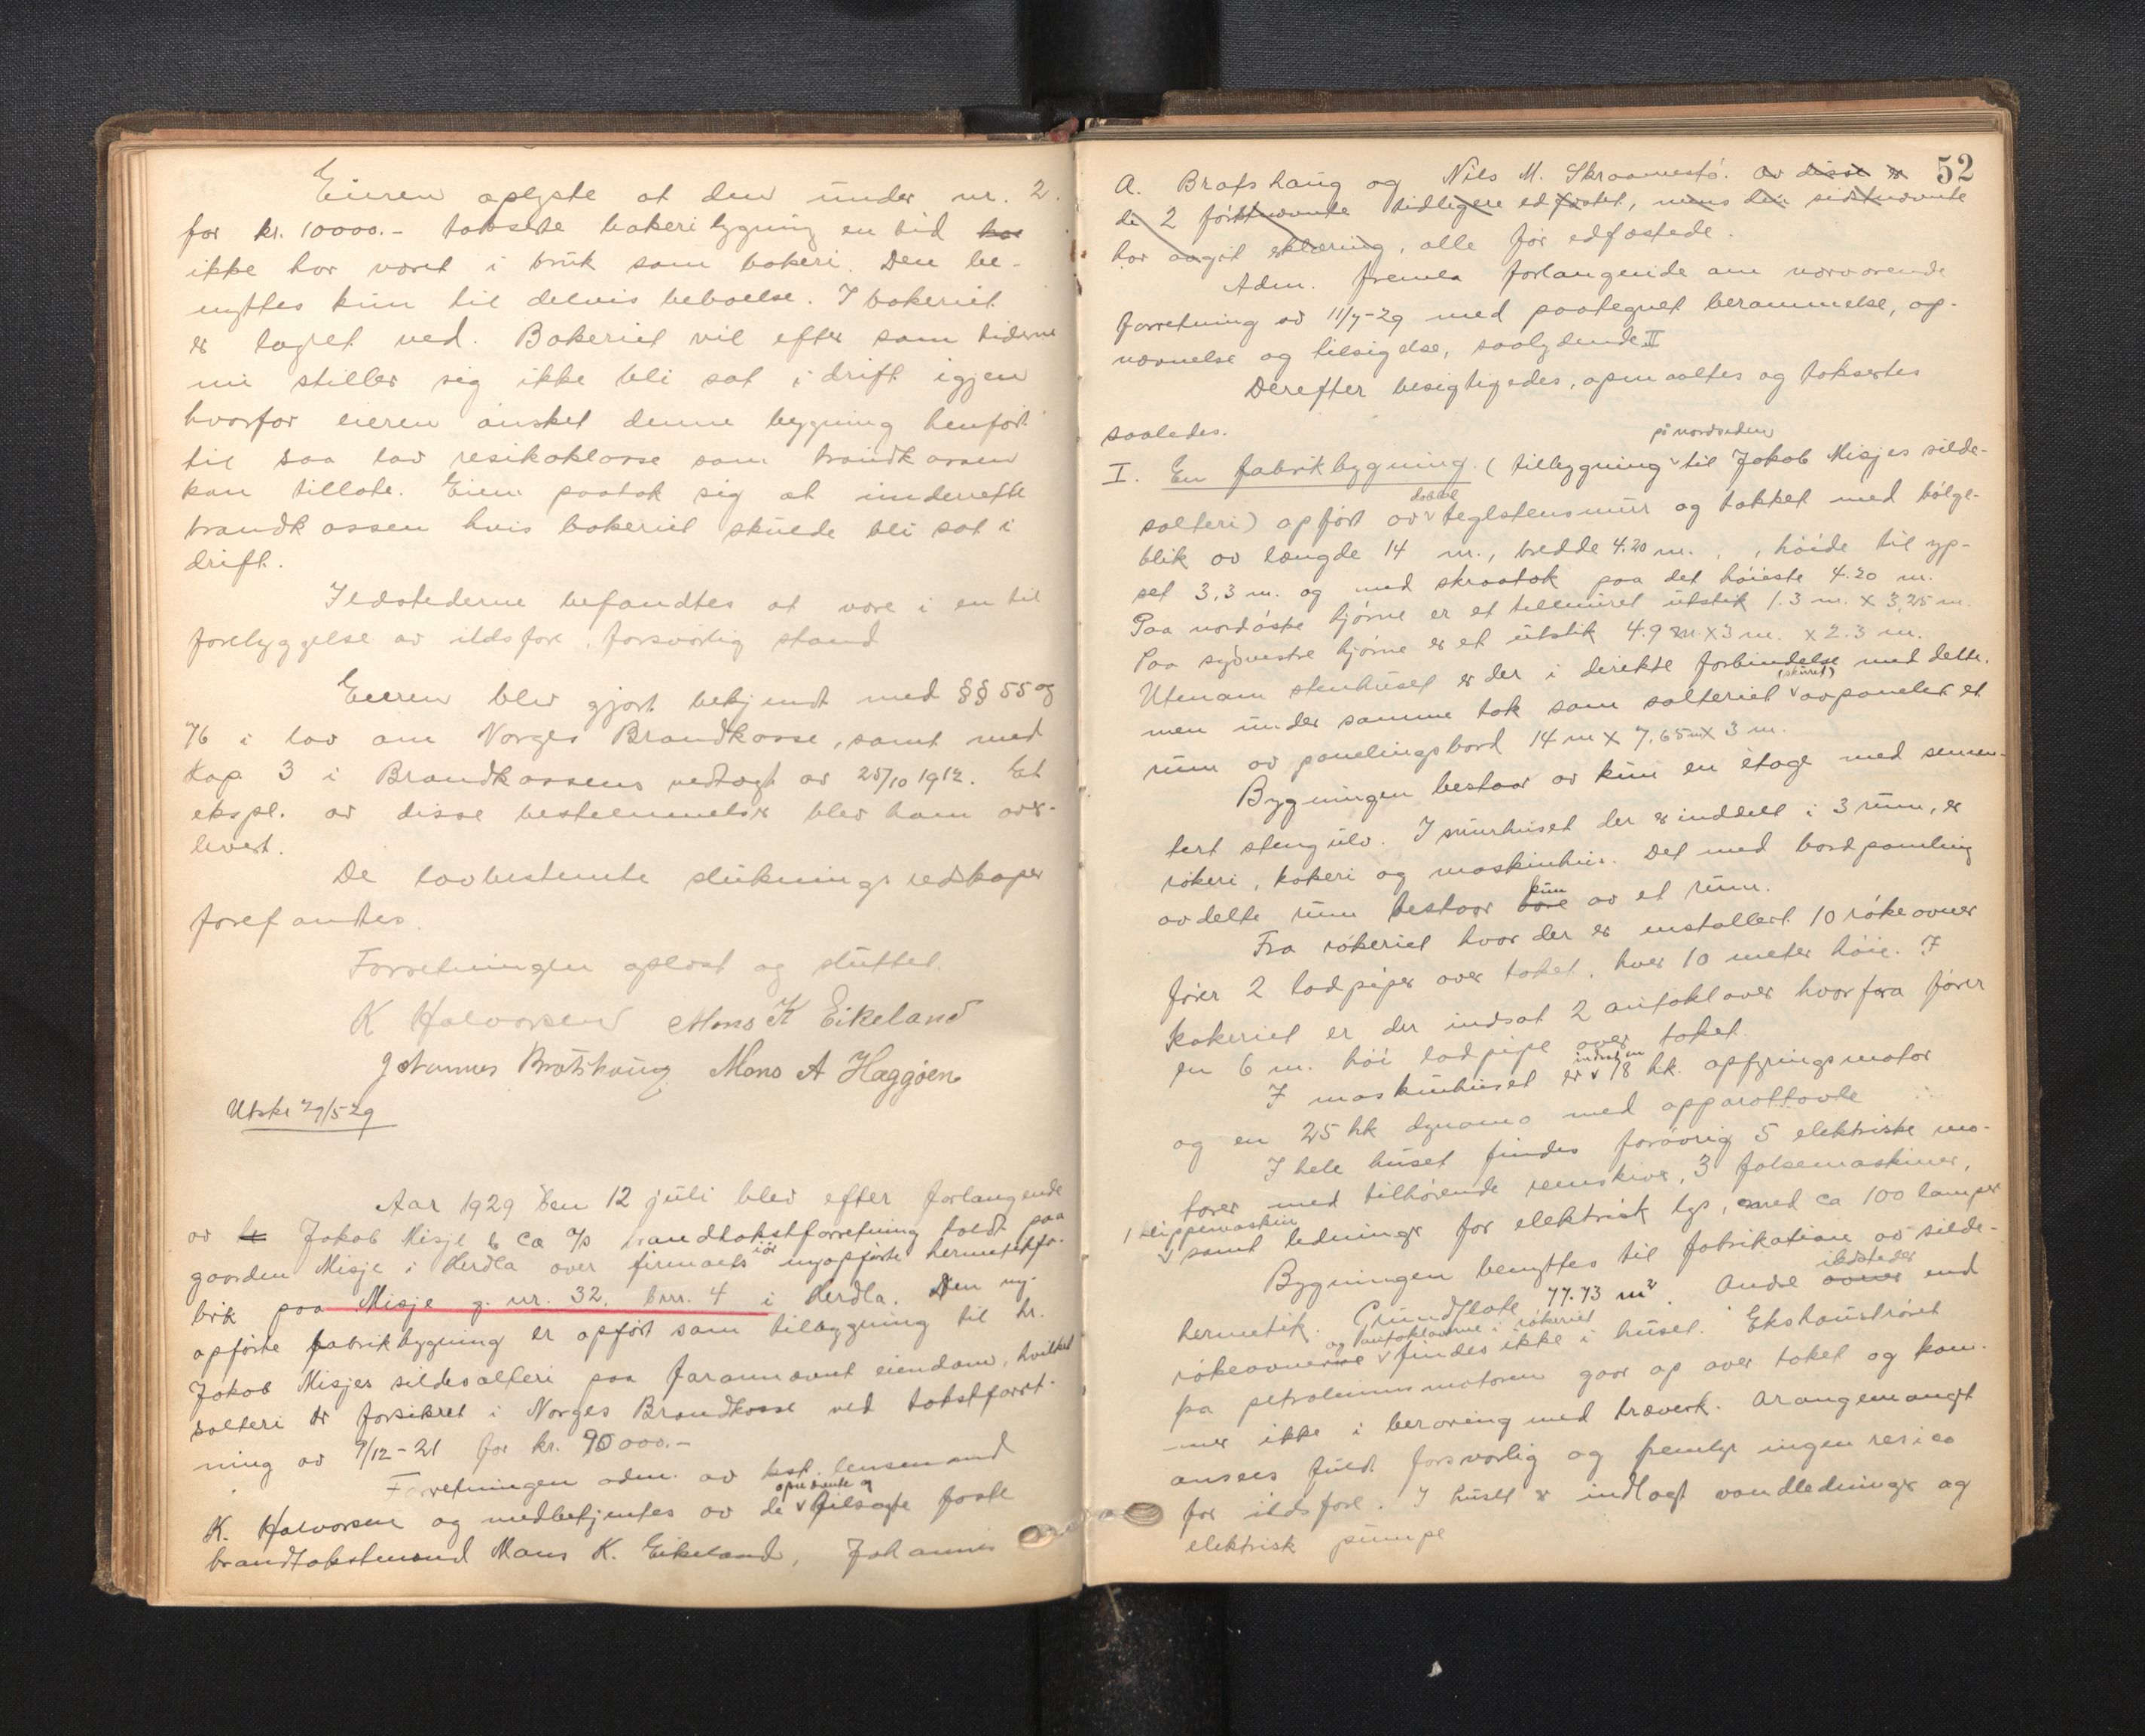 Eieren oplyste at den under nr. 2.
for kr. 10000.- takserte bakeribygning en tid har
ikke har været i bruk som bakeri. Den be-
nyttes kun til delvis beboelse. I bakeriet
er lagret ved. Bakeriet vil efter som tiderne
nu stiller sig ikke bli sat i drift igjen
hvorfor eieren ønsket denne bygning henført
til saa lav resikoklasse som brandkassen
kan tillate. Eieren paatok sig at underrette
brandkassen hvis bakeriet skulde bli sat i
drift.
Ildstederne befandtes at være i en til
forebyggelse av ildsfare, forsvarlig stand
Eieren blev gjort bekjendt med §§ 55 og
76 i lov om Norges Brandkasse, samt med
Kap. 3 i Brandkassens vedtægt av 25/10 1912. Et
ekspl. av disse bestemmelser blev ham over-
levert.
De lovbestemte slukningsredskaper
forefantes.
Forretningen oplæst og sluttet.
K Halvorsen Mons K Eikeland
Johannes Bratshaug Mons A Hæggøen
Utskr 29/5 29
Aar 1929 den 12 juli blev efter forlangende
av Jakob Misje & Co A/S brandtakstforretning holdt paa
gaarden Misje i Herdla over firmaets iør nyopførte hermetikfa-
brik paa Misje g. nr. 32. brnr. 4 i Herdla. Den ny-
opførte fabrikbygning er opført som tilbygning til hr.
Jakob Misjes sildesalteri paa forannævnt eiendom, hvilket
salteri er forsikret i Norges Brandkasse ved takstforret-
ning av 9/12-21 for kr. 90000.-
Forretningen adm. av kst. lensmand
opnævnte og
K. Halvorsen og medbetjentes av de v tilsagte faste
brandtakstmænd Mons K. Eikeland, Johannes
52
A. Bratshaug og Nils M. Skraamestø. Av disse er
de 2 førstnævnte tidligere edfæstet, mens den sidstnævnte
har avgit erklæring, alle før edfæstede.
Adm. fremla forlangende om nærværende
forretning av 11/7-29 med paategnet berammelse, op-
nævnelse og tilsigelse, saalydende II
Derefter besigtigedes, opmaaltes og taksertes
saaledes.
på nordsiden
I. En fabrikbygning. (tilbygning v til Jakob Misjes silde-
dobbel
salteri) opført av v teglstensmur og tækket med bølge-
blik av længde 14 m., bredde 4.20 m., , høide til gp-
set 3,3 m. og med skraatak paa det høieste 4.20 m.
Paa nordøstre hjørne er et tilmuret utstik 1.3 m. x 3,25 m.
Paa sydvestre hjørne er et utstik 4.9 m. x 3 m. x 2.3 m.
Utenom stenhuset er der i direkte forbindelse med dette.
(skuret)
men under samme tak som salteriet v avpanelet et
rum av panelingsbord 14 m x 7,65 m x 3 m.
Bygningen bestaar av kun en etage med semen-
tert stengulv. I murhuset der er inddelt i 3 rum, er
røkeri, kokeri og maskinhus. Det med bordpanling
kun
avdelte rum bestaar bare av et rum.
Fra røkeriet hvor der er installert 10 røkeovner
fører 2 lodpiper over taket, hver 10 meter høie. I
kokeriet er der indsat 2 autoklaver hvorfra fører
en 6 m. høi lodpipe over taket.
I maskinhuset er v 18 hk. opfyringsmotor
og en 25 hk dynamo med apparattavle
I hele huset findes forøvrig 5 elektriske mo-
torer med tilhørende remskiver, 3 falsemaskiner,
1 klippemaskin
v samt ledninger for elektrisk lys, med ca 100 lamper
Bygningen benyttes til fabrikation av silde-
ildsteder
hermetik. Grundflate 77.73 m². Andre ovner end
og autoklaverne i røkeriet
røkeovnerne v findes ikke i huset. Ekshaustrøret
fra petroleumsmotoren gaar op over taket og kom-
mer ikke i berøring med træverk. Arangemanget
ansees fuldt forsvarlig og frembyr ingen resico
for ildsfare. I huset er indlagt vandledninger og
elektrisk pumpe